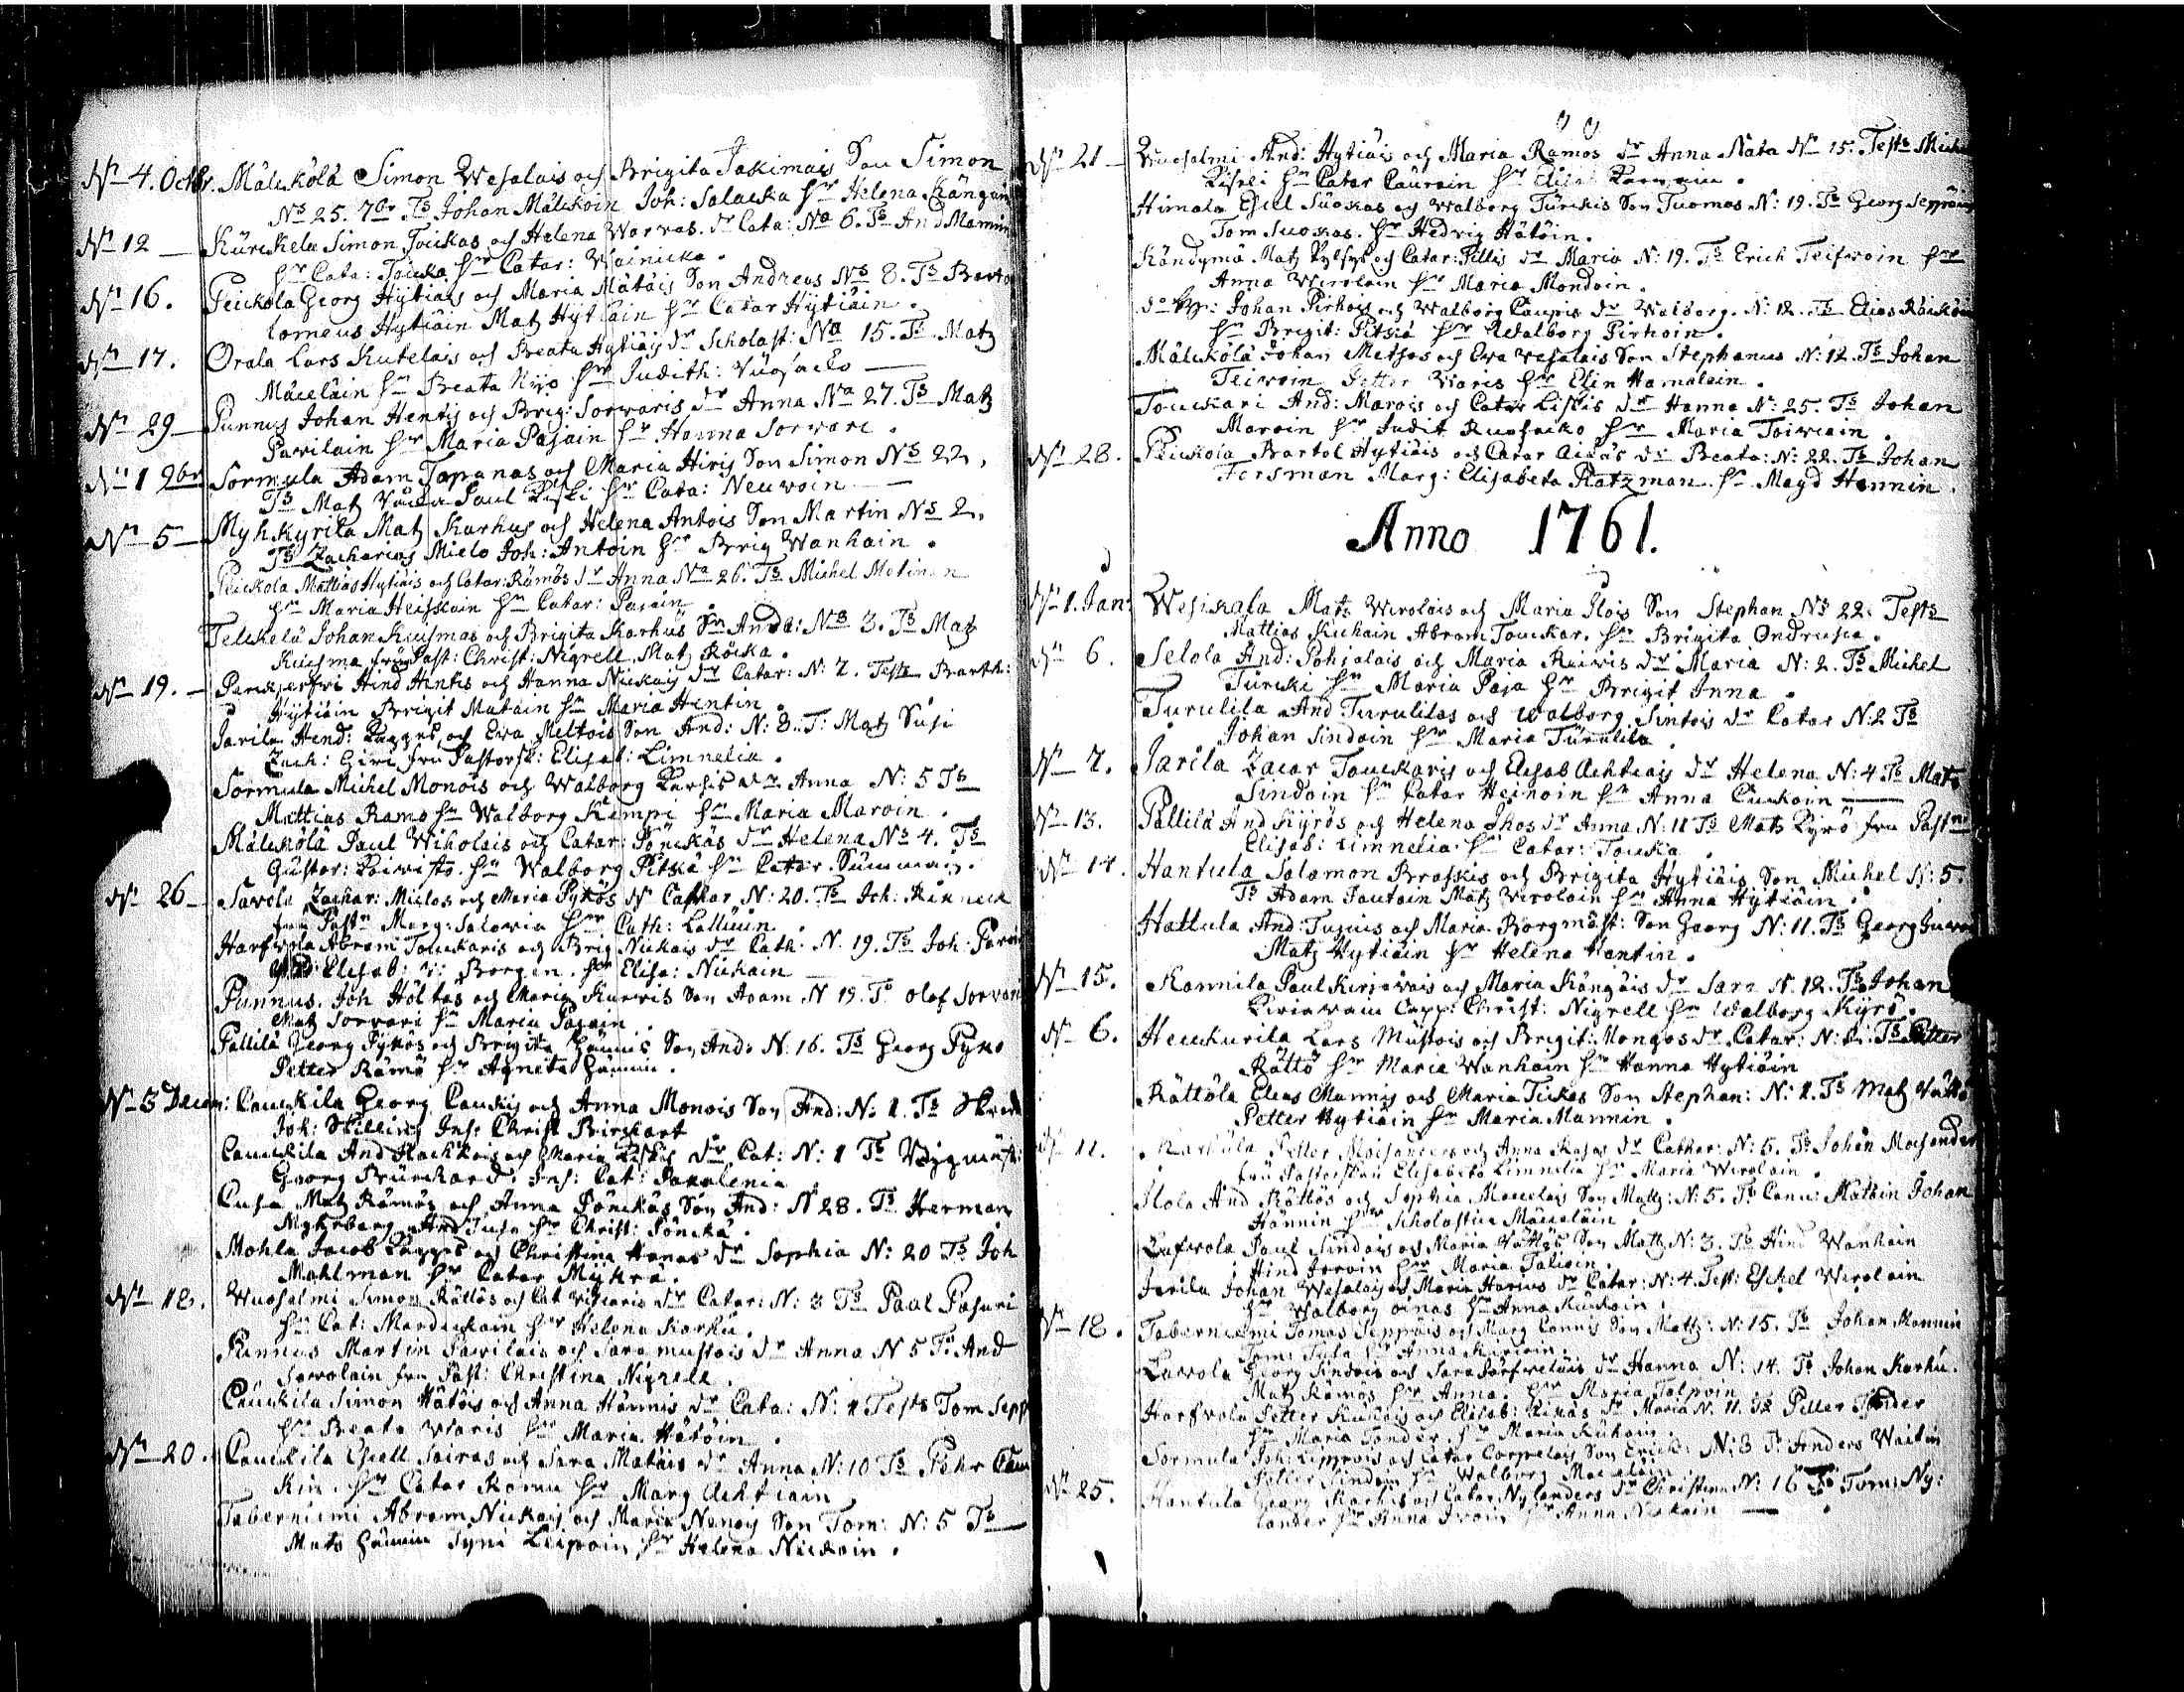 Nn 4. Octbr. Mälckölä Simon Wesalais och Brigita Jakimais Son Simon
Ns 25. 7br Ts Johan Mälckoin Joh: Salacka hr Helena Kängain
Nn 12 — Kürckela Simon Touckas och Helena Worvas. dr Cata: Na 6. Ts And Mannin
hr Cata: Toucka hr Catar: Wainicka.
Nn 16. Peickola Georg Hytiäis och Maria Mätäis Son Andreas Ns 8. Ts Barto
lomeus Hytiäin Matz Hytiäin hr Catar Hytiäin.
Nn 17. Orala Lars Kutelais och Beata Hytiäis dr Scholast: Na 15. Ts Matz
Mäceläin hr Beata Kyö hr Judith:
Nn 29 — Punnus Johan Hentis och Brig: Sorvaris dr Anna Na 27. Ts Matz
Pavilain hr Maria Pajain hr Hanna Sorvari.
Nn 1 9br Sormula Adam Tapanas och Maria Hiris Son Simon Ns 22.
Ts Matz Paul Kiski hr Cata: Neuvoin —
Nn 5 — Myhkyrila Matz Karhus och Helena Antois Son Martin Ns 2.
Ts Zacharias Mielo Joh: Antoin hr Brig Wanhain.
Peickola Mattias Hytiäis och Catar: Rämös dr Anna Na 26. Ts Michel Motinen
hr Maria Heisskain hr Catar: Pajain.
Telckelä Johan Kuismas och Brigita Karhus Sn Andr: Ns 3. Ts Matz
Kuisma fru Past: Christ: Nigrell, Matz Röcka.
Nn 19. — Hind Hentis och Hanna Nickais dr Catar: N: 7. Tests Barth:
Hytiäin Brigit Matäin hr Maria Hentin.
Jarila Hend: Pagges och Eva Meltois Son And: N: 8. T: Matz Susi
Zach: Giri fru Pastorsk: Elisab: Limnelia.
Sormula Michel Monois och Walborg dr Anna N: 5 Ts
Mattias Ramo hr Walborg Kempi hr Maria Maroin.
Mälckölä Paul Wiholais och Catar: Pönckäs dr Helena Ns 4. Ts
Gustav: Koivisto. hr Walborg Pitkä hr Catar. Summain.
Nn 26 — Savola Zachar: Mielos och Maria Pykös Sn Caspar N: 20. Ts Joh:
fru Pastn Marg: Salovia hr Cath: Lalluin.
Harfvola Abram Touckaris och Brig Nickais dr Cath. N. 19. Ts Joh.
Elisab: v: Borgen. hr Elisa: Nickain —
Punnus. Joh Höltas och Maria Kurvis Son Adam. N 19. Ts Olof Sorvari
Matz Sorvari hr Maria Pajain.
Pällilä Georg Pykös och Brigita Hännis Son And: N: 16. Ts Georg Pykö
Petter Rämö hr Agneta Hännin.
Nn 3 Decem: Cauckila Georg Cauckis och Anna Monois Son And: N: 1. Ts
Joh: Skilling Jnf: Christ Brirckart
Cauckila And Hackkais och Maria Kiskis dr Cat: N: 1 Ts
Georg Brunckard. Jnf: Cat:
Cusa Matz Rämös och Anna Pönckäs Son And: N 28. Ts Herman
Myhrberg And Cusa hr Christ: Pöncka.
Mohla Jacob Pagges och Christina Hanas dr Sophia N: 20 Ts Joh
Mahlman hr Catar Mykrä.
Nn 12. Wuosalmi Simon Rättös och Cat dr Catar: N: 3 Ts Paul Pasuri
hr Cat: Manduckain hr Helena Karhu.
Punnus Martin Pavilais och Sara Mustois dr Anna N 5 Ts And
Savolain fru Past: Christina Nigrell.
Cauckila Simon Hätöis och Anna Hännis dr Cata: N: 4 Tests Tom Sepp
hr Beata Waris hr Maria Hätöin.
Nn 20. Cauckila Eskell Sairas och Sara Matäis dr Anna N: 10 Ts Pehr Cau
kin. hr Catar Ramu hr Marg Achtiain
Taberniemi Abram Nickais och Maria Nenois Son Tom: N: 5 Ts
Mats Hännin Syni Leipoin hr Helena Nickain.
Nn 21 — Wuosalmi And: Hytiäis och Maria Rämös dr Anna Nata Na 15. Tests Michel
Kiseli hr Catar Cauroin hr
Himala Eskel Suokas och Walborg Türckis Son Tuomas N: 19. Ts Georg Seppäin
Tom Suokas. hr Hedvig Hätöin.
Kändymä Matz och Catar: Pillis dr Maria N: 19. Ts Erich Teifvoin hr
Anna Wirolain hr Maria Mondoin.
do Johan Pirhois och Walborg Caupis dr Walborg. N: 12. Ts Elias Räickäin
hr Brigit: Pitkä hr Walborg Pirhoin.
Mälckölä Johan Metsos och Eva Wesalais Son Stephanus N: 12. Ts Johan
Teivoin Petter Waris hr Elin Hamalain.
Touckari And: Marois och Catar Kiskis dr Hanna N: 25. Ts Johan
Maroin hr Judit Ruohiko hr Maria Toiviain.
Nn 28. Peickola Bartol Hytiäis och Catar Aikäs dr Beata: N: 22. Ts Johan
Forsman Marg: Elisabeta Ratzman. hr Magd Hannin.
Anno 1761.
Nn 1. Jan: Wesikala Mats Wirolais och Maria Ilois Son Stephan Ns 22. Tests
Mattias Kuhain Abram Touckar. hr Brigita Ondruska.
Nn 6. Selola And: Pohjalais och Maria Kurvis dr Maria N: 2. Ts Michel
Türcki hr Maria Paja hr Brigit Inna.
Turulila And Turulilas och Walborg Sintois dr Catar N: 2 Ts
Johan Sindoin hr Maria Turulila.
Nn 7. Jarila Zacar Touckaris och Elisab Achtiais dr Helena N: 4 Ts Mats
Sindoin hr Catar Heinoin hr Anna Cuckoin —
Nn 13. Pällilä And Kyrös och Helena Ihos dr Anna. N: 11 Ts Matz Kyrö fru Pastn
Elisab: Limnelia hr Catar: Toucka.
Nn 14. Hantula Salomon Braskis och Brigita Hytiäis Son Michel N: 5.
Ts Adam Pautain Matz Wirolain hr Anna Hytiäin.
Hattula And: Tujuis och Maria Borgmäst: Son Georg N: 11. Ts Georg
Matz Hytiäin hr Helena Hantin.
Nn 15. Kannila Paul Kirjavais och Maria Kängäis dr Sara N. 12. Ts Johan
Kiriavain Capp: Christ: Nigrell hr Walborg Kyrö.
Nn 6. Heickurila Lars Mustois och Brigit: Mongos dr Catar: N: 2. Ts Petter
Rättö hr Maria Wanhain hr Hanna Hytiäin
Rättölä Elias Mannis och Maria Tickas Son Stephan: N: 1. Ts Matz Vättö
Petter Hytiäin hr Maria Mannin.
Nn 11. Karhula Petter Moisanders och Anna Rosas dr Cathar: N: 5. Ts Johan Moisander
fru Pastorskan Elisabeta Limnelia hr Maria Wirolain.
Ilola And Rättös och Sophia Maccelais Son Matz: N: 5. Ts Cann: Mattin Johan
Hännin hr Scholastica Mäceläin.
Lafvola Paul Sindois och Maria Vättös Son Matz N: 3. Ts Hind Wanhain
Hind Jorvin hr Maria Talioin.
Jarila Johan Wesalais och Maria Harius dr Catar: N: 4. Test: Eskel Wirolain
hr Walborg Oinas hr Anna Kuckoin.
Nn 18. Taberniemi Tomas Seppäis och Marg Connis Son Matz: N: 15. Ts Johan Mannin
Tom: hr Anna
Lavola Georg Sindois och Sara dr Hanna N: 14. Ts Johan Karhu.
Matz Rämös hr Anna. hr Maria Talpoin
Harfvola Petter Kukois och Elisab: Rikas dr Maria N. 11. Ts Petter Tönder
hr Maria Tönder. hr Maria Kukoin.
Sormula Joh: Lipposis och Catar Corpelais Son Erich: N: 3 Ts Anders Waitin
Petter Sindoin hr Walborg
Nn 25. Hantula Georg Karhus och Catar Nylanders dr Christina N: 16 Ts Tom: Ny:
lander hr Anna hr Anna Nickain —